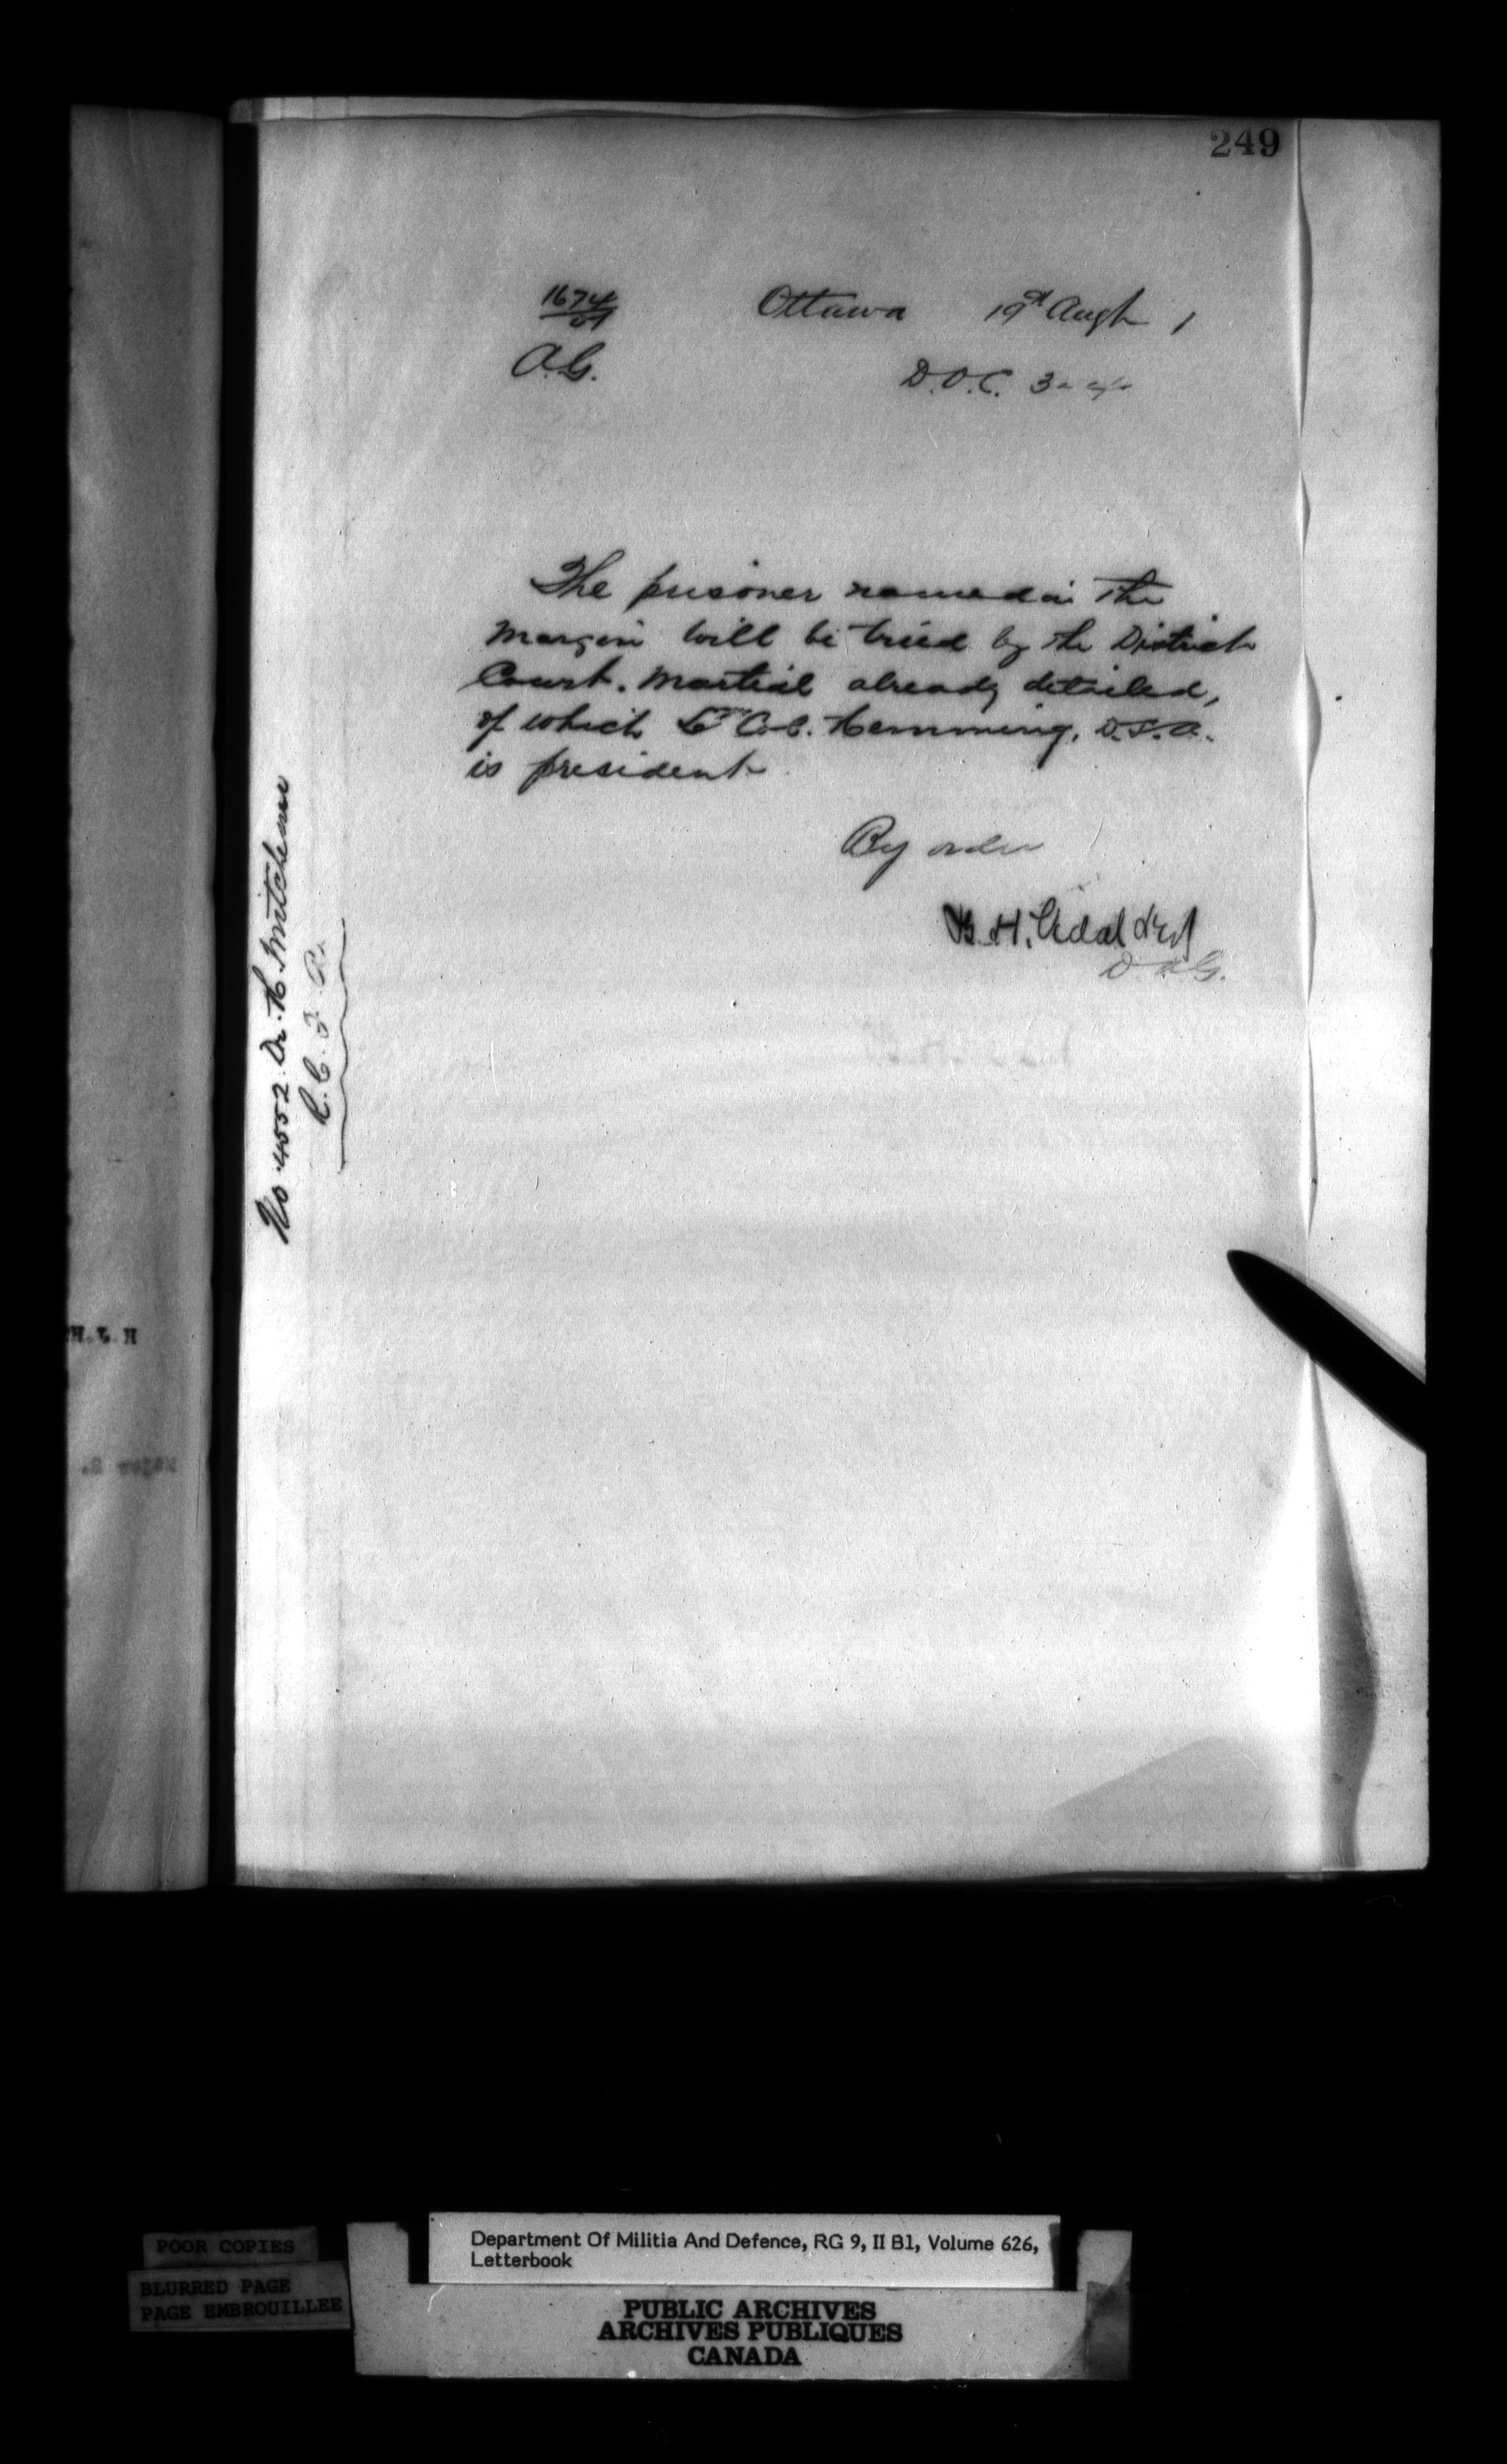 249
1674/01
Ottawa 19th Augt 1
A.G.
D.O.C. 3
The prisoner named in the
Margin will be tried by the District
Court. Martial already detailed,
of which Lt Col. Hemming, D.S.A.
is president
By order
B. H. Vidal
D.A.G.
No 4552. Dr. H. Mitchene
R. C. F. A.
H.L.H
Major B.
POOR COPIES
BLURRED PAGE
PAGE EMBROUILLEE
Department Of Militia And Defence, RG 9, II B1, Volume 626,
Letterbook
PUBLIC ARCHIVES
ARCHIVES PUBLIQUES
CANADA